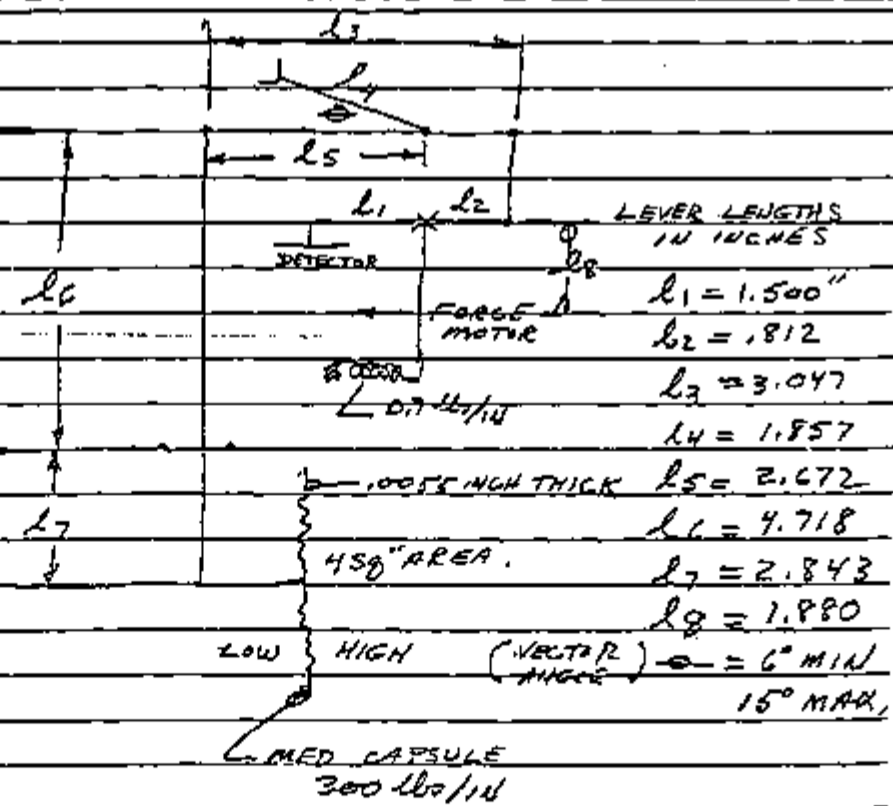 l3
l4
θ
l5
l1 l2
LEVER LENGTHS
IN INCHES
DETECTOR
l8
l6
l1 = 1.500"
FORCE
MOTOR
l2 = .812
l3 = 3.047
0.7 lbs/IN
l4 = 1.857
.0055 INCH THICK
l5 = 2.672
l6 = 4.718
l7
4 Sq" AREA.
l7 = 2.843
l8 = 1.880
LOW HIGH
(VECTOR
ANGLE) θ = 6° MIN
15° MAX,
MED CAPSULE
300 lbs/IN